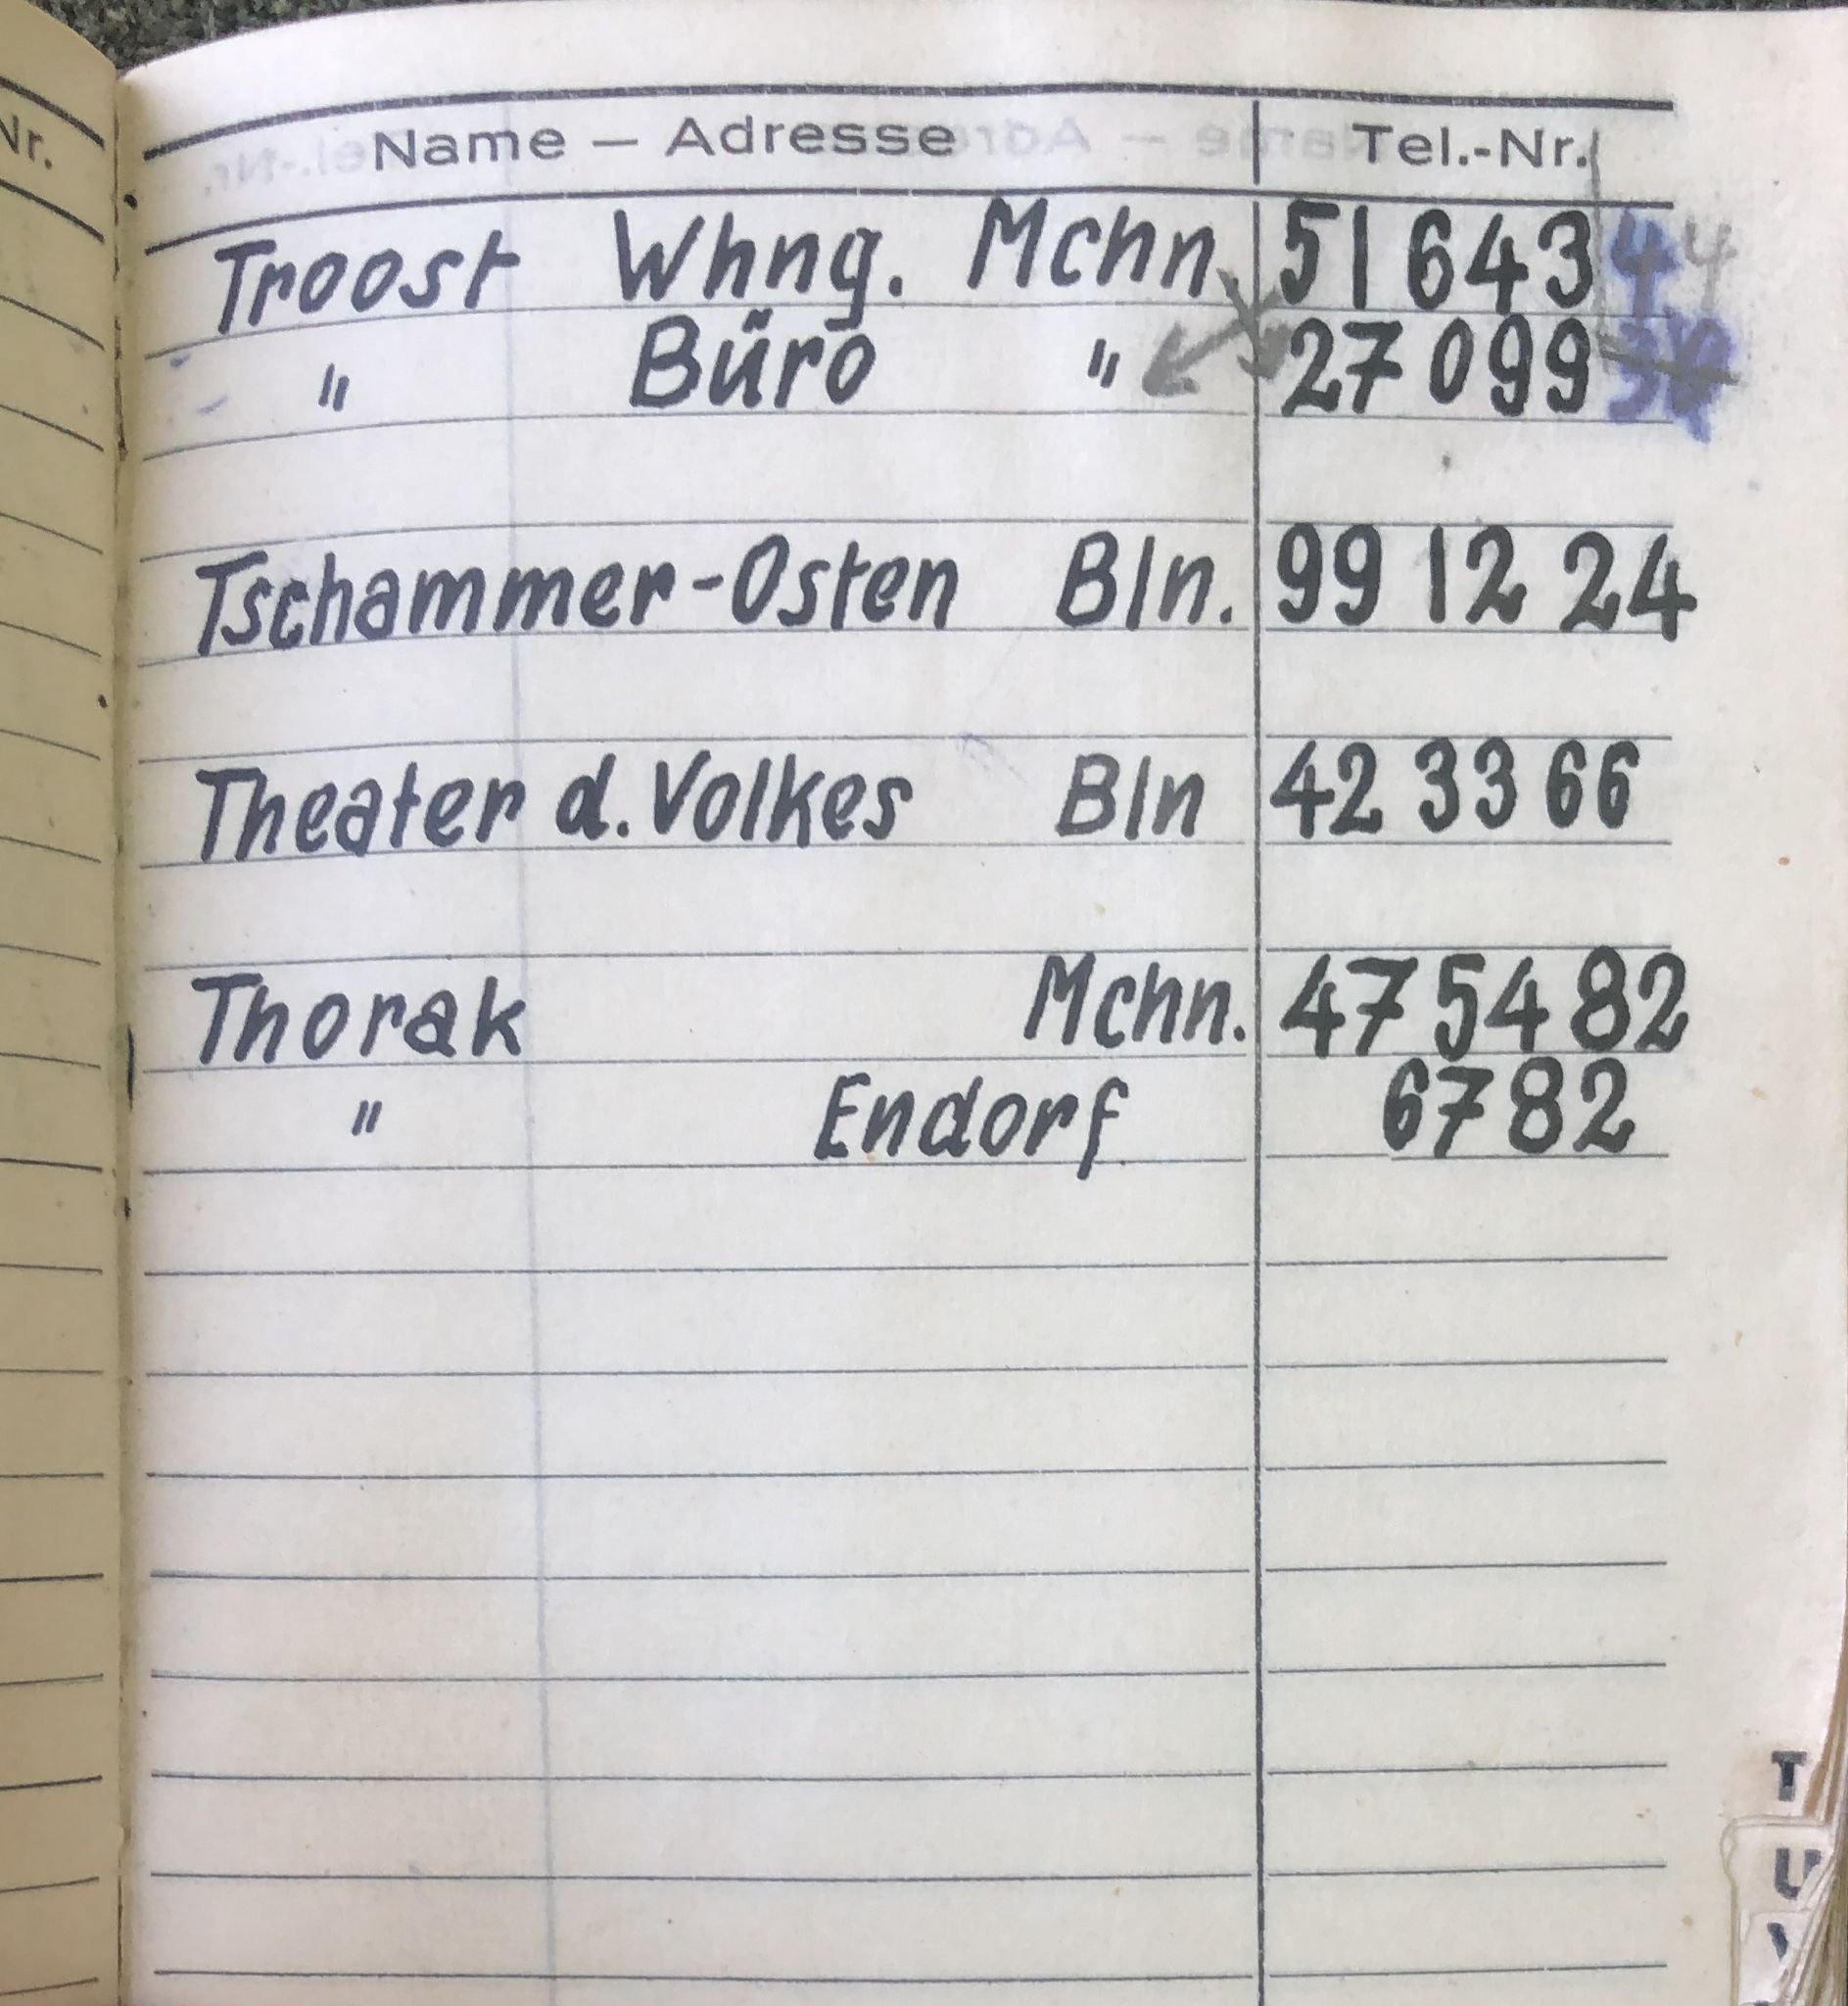 Nr.
Name – Adresse Tel.-Nr.
Troost Whng. Mchn. 51643 44
" Büro " 27099
Tschammer-Osten Bln. 99 12 24
Theater d. Volkes Bln 42 33 66
Thorak Mchn. 47 54 82
" Endorf 6782
T
U
V